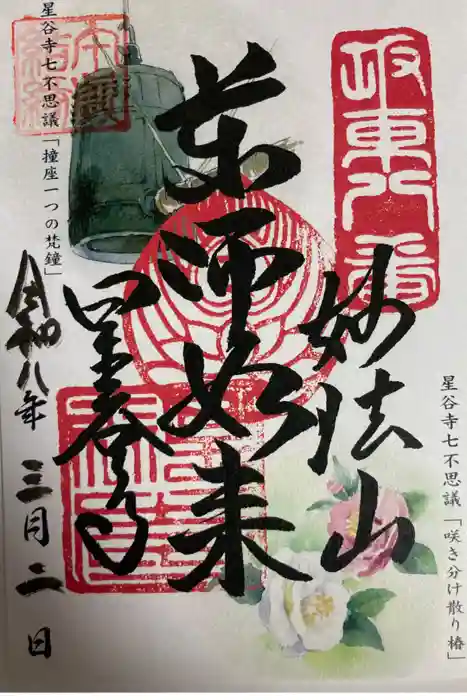 坂東八番
妙法山
薬師如来
星谷寺
令和八年 三月二日
星谷寺七不思議「撞座一つの梵鐘」
星谷寺七不思議「咲き分け散り椿」
結縁